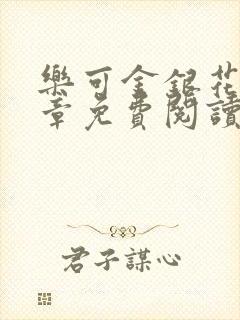 樂可金銀花
章免費閱讀
君子謀心